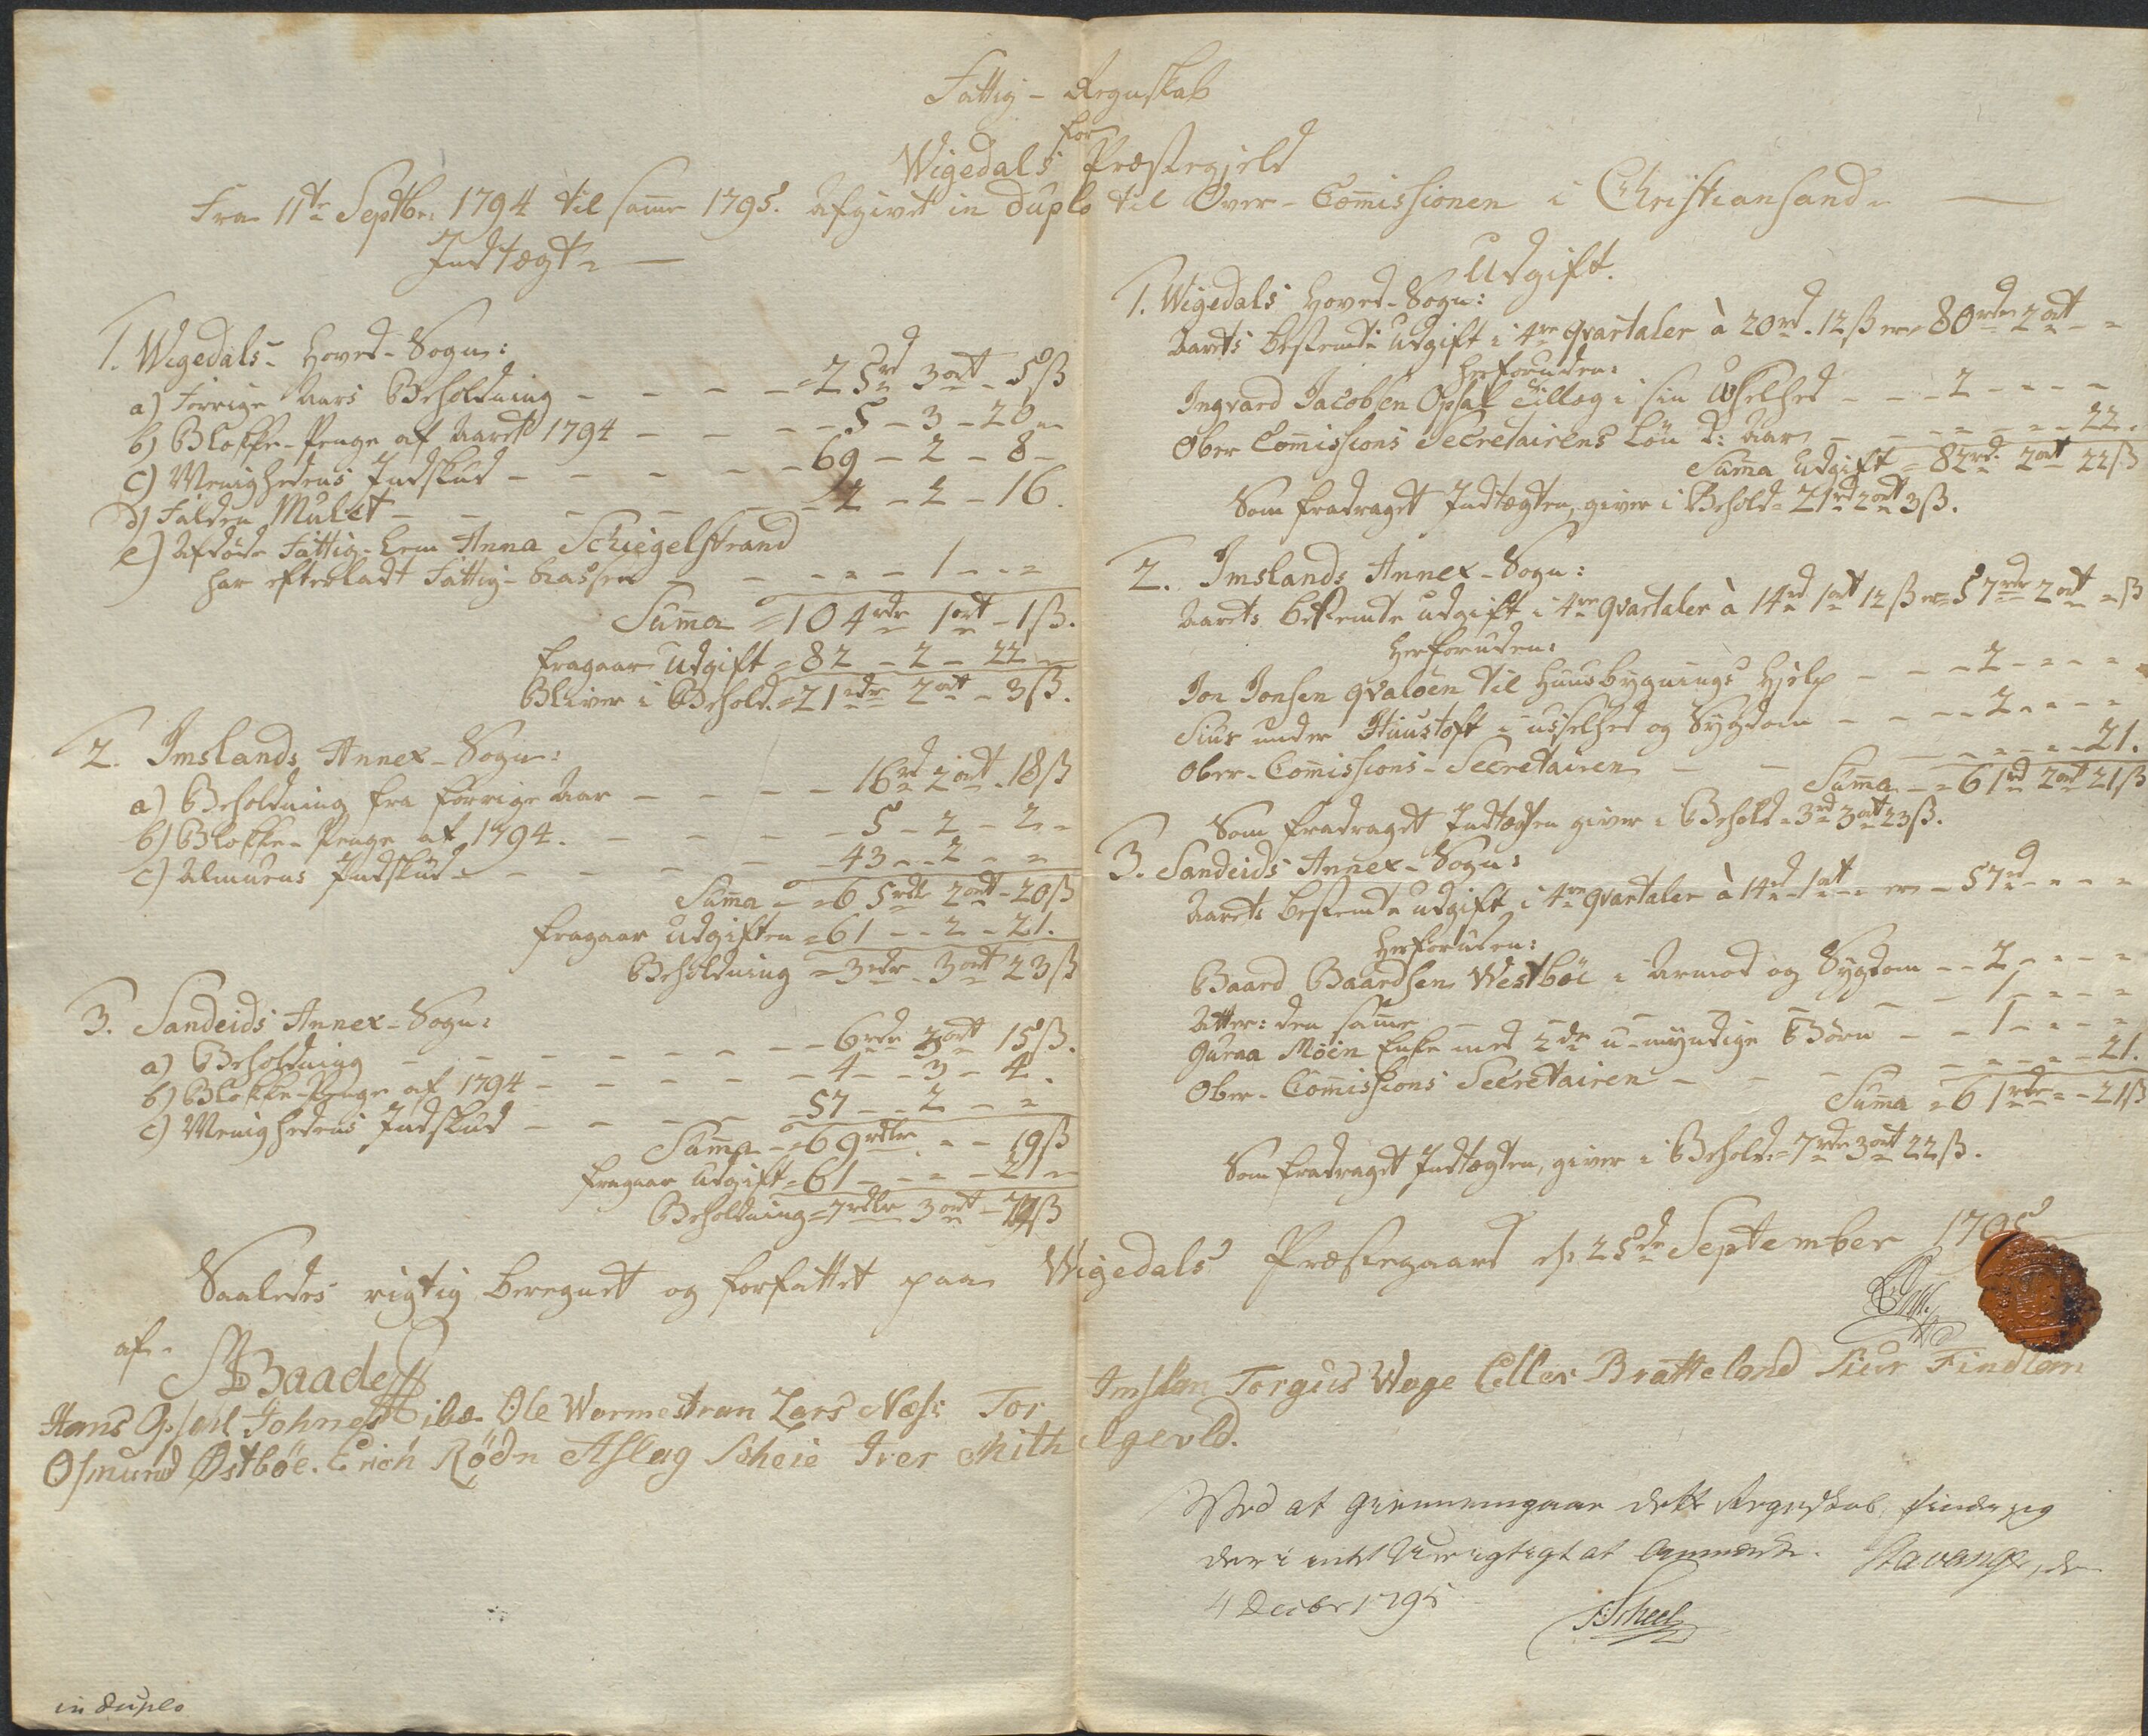 Fattig-Regnskab
for
Wigedals Præstegield
Fra 11te Septbr. 1794 til samme 1795. Afgivet in duplo til Over-Commissionen i Christiansand
Indtægt
1. Wigedals Hoved-Sogn:
a) Forrige Aars Beholdning - - - - 25rd 3ort 5ß
b) Blokke-Penge af Aaret 1794 - - - - 5 - 3 - 20
c) Menighedens Indskud - - - - 69 - 2 - 8
d) Falden Mulct - - - - 2 - 2 - 16.
e) Afdøde Fattig-Lem Anna Schiegelstrand
har efterladt Fattig-Cassen - - - - 1 - - -
Summa = 104rdr 1ort - 1ß.
fragaar Udgift = 82 - 2 - 22
Bliver i Behold = 21rdr 2ort - 3ß.
2. Imslands Annex-Sogn:
a) Beholdning fra forrige Aar - - - - 16rd 2ort 18ß
b) Blokke-Penge af 1794. - - - - 5 - 2 - 2
c) Almuens Indskud - - - - 43 - 2 - -
Summa - = 65rdr 2ort - 20ß
fragaar Udgiften = 61 - 2 - 21.
Beholdning = 3rdr 3ort 23ß
3. Sandeids Annex-Sogn:
a) Beholdning - - - - 6rdr 3ort 15ß.
b) Blokke-Penge af 1794 - - - - 4 - 3 - 4.
c) Menighedens Indskud - - - - 57 - 2 - -
Summa - = 69rdlr - - 19ß
fragaar Udgift = 61 - - - 21
Beholdning = 7rdlr 3ort - 22ß
Udgift.
1. Wigedals Hoved-Sogn:
Aarets bestemte Udgift i 4re Qvartaler à 20rd. 12ß er = 80rdr 2ort - -
Herforuden:
Ingvard Jacobsen Opsal Tillæg i sin Uselhed - - - 2 - - -
Ober Commissions Secretairens Løn d: Aar - - - - 22.
Summa Udgift = 82rd: 2ort 22ß
Som fradraget Indtægten, giver i Behold = 21rd 2ort 3ß.
2. Imslands Annex-Sogn:
Aarets bestemte udgift i 4re Qvartaler à 14rd 1ort 12ß er = 57rdr 2ort - ß
Herforuden:
Jon Jonsen Qvaløen til Huusbygnings Hjelp - - - 2 - - -
Siur under Huustoft i usselhed og Sygdom - - - 2 - - -
Ober-Commissions-Secretairen - - - - - 21.
Summa - = 61rd 2ort 21ß
Som fradraget Indtægten giver i Behold = 3rd 3ort 23ß.
3. Sandeids Annex-Sogn:
Aarets bestemte udgift i 4re Qvartaler à 14rd - 1ort - er - 57rd - - -
Herforuden:
Baard Baardsen Westbøe i Armod og Sygdom - - 2 - - -
Atter: den samme - - - - 1 - - -
Guraa Møen Enke med 2de u-myndige Børn - - 1 - - -
Ober-Commissions Secretairen - - - - 21.
Summa = 61rdr - - 21ß
Som fradraget Indtægten, giver i Behold = 7rdr 3ort 22ß.
Saaledes rigtig beregnet og forfattet paa Wigedals Præstegaard d. 25de September 1795
af
Baade
Hans Opsal Johnes Ole Wormestran Lars Næss Tor Imslan Torgius Wage Eller Bratteland Siur Findlan
Osmund Østbøe. Erich Rødn Aslag Scheie Iver Mithelgevld.
Ved at giennemgaae dette Regnskab, finder jeg
deri intet Urigtigt at bemærke. Stavanger, den
4 Decbr 1795
Scheel
in duplo